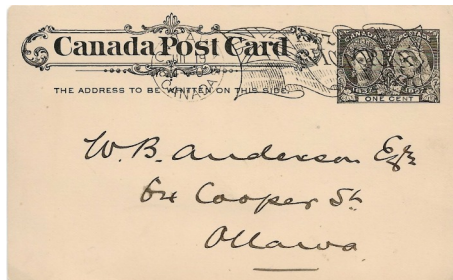 Canada Post Card
THE ADDRESS TO BE WRITTEN ON THIS SIDE
CANADA
ONE CENT
W. B. Anderson Esq
64 Cooper St
Ottawa